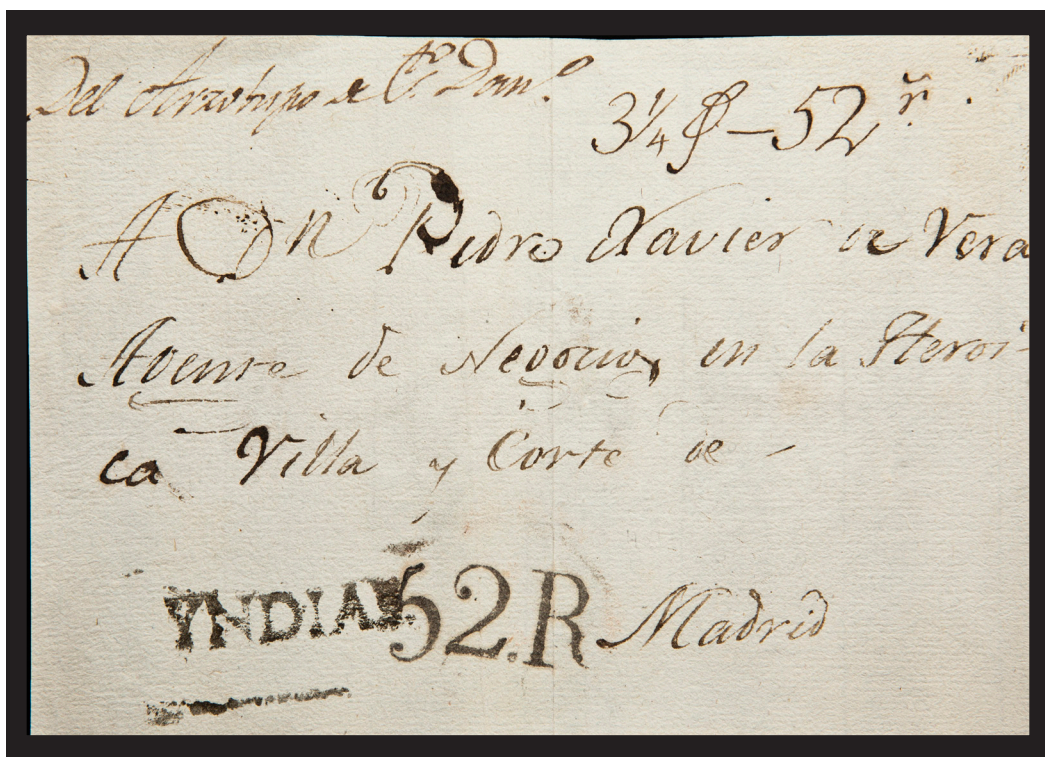 Del Arzobispo de Sto. Domo.
3¼ ₰ - 52 rs.
A Dn Pedro Xavier de Vera
Agente de Negocios, en la Heroi-
ca Villa y Corte de -
YNDIAS 52.R Madrid